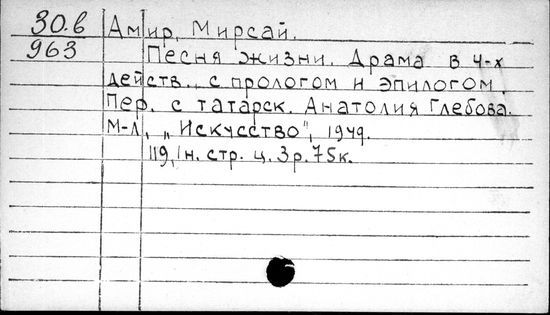 30.в Амир, Мирсай.
963 Песня жизни. Драма в 4-х
действ., с прологом и эпилогом.
Пер. с татарск. Анатолия Глебова.
М-Л, „Искусство", 1949.
119,1н. стр. ц. 3р.75к.